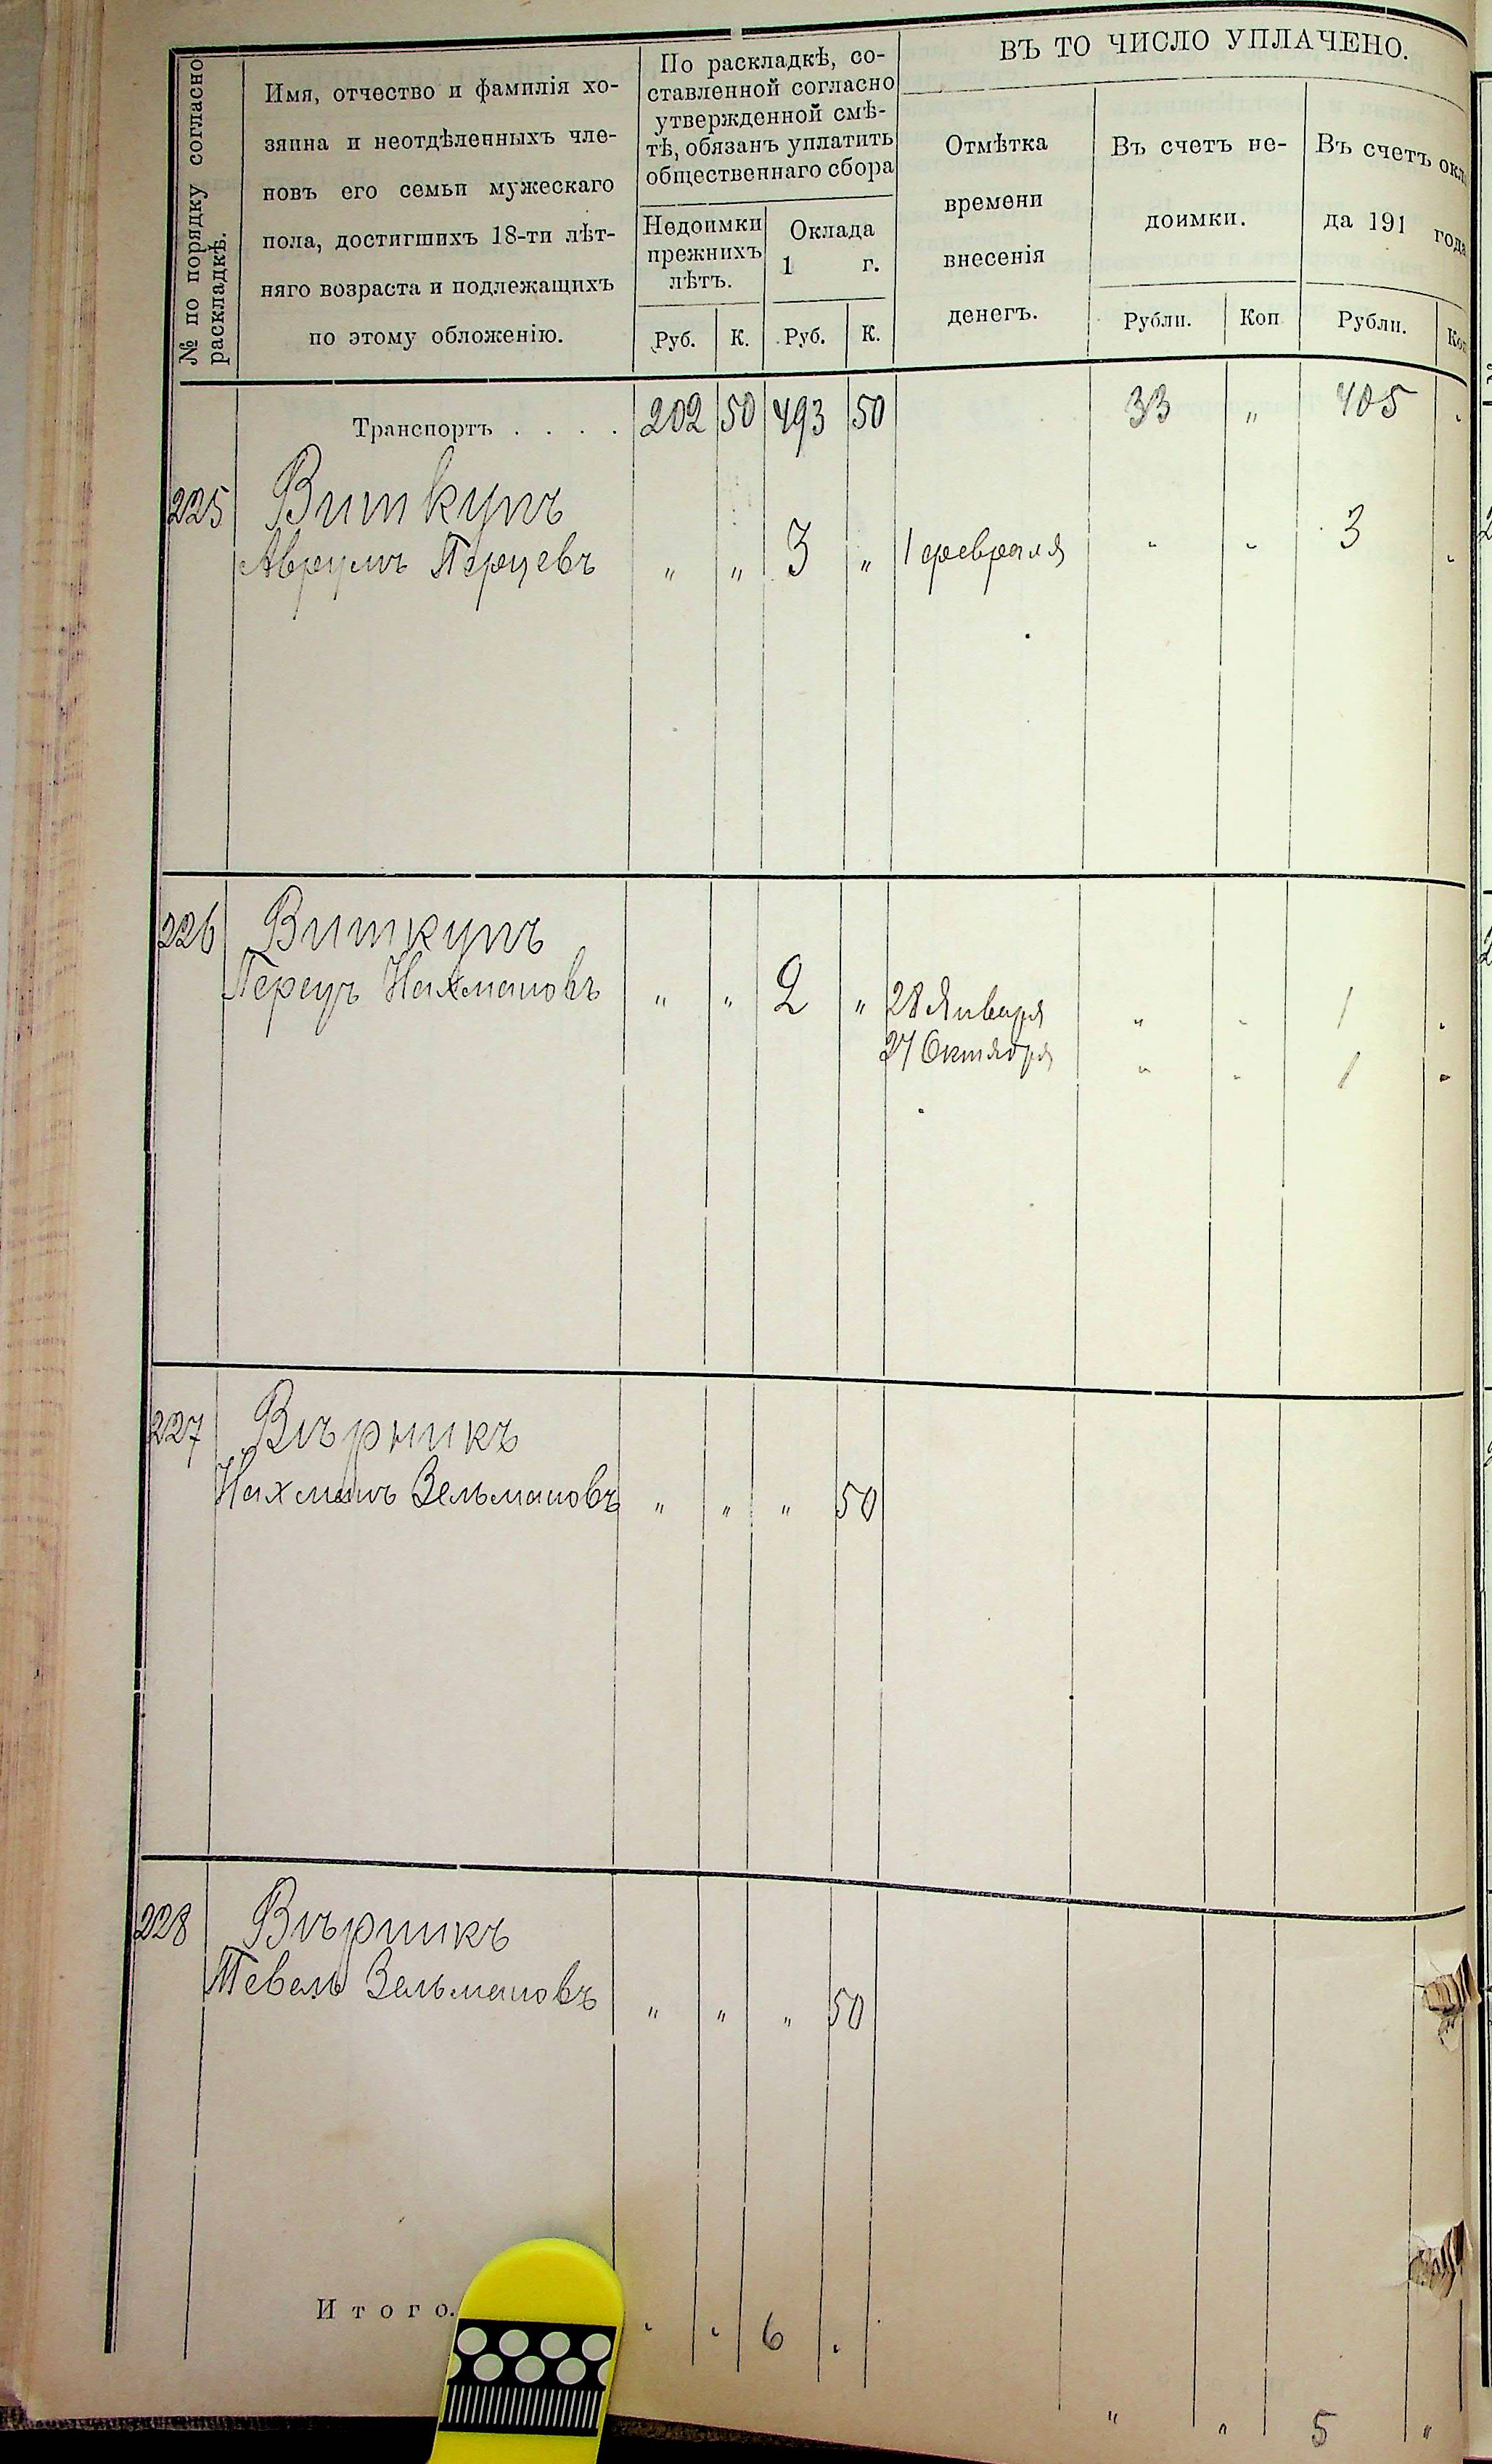 № по порядку согласно
раскладкѣ.
Имя, отчество и фамилія хо-
зяина и неотдѣленныхъ чле-
новъ его семьи мужескаго
пола, достигшихъ 18-ти лѣт-
няго возраста и подлежащихъ
по этому обложенію.
По раскладкѣ, со-
ставленной согласно
утвержденной смѣ-
тѣ, обязанъ уплатить
общественнаго сбора
Недоимки
прежнихъ
лѣтъ.
Оклада
1 г.
Руб. К. Руб. К.
ВЪ ТО ЧИСЛО УПЛАЧЕНО.
Отмѣтка
времени
внесенія
денегъ.
Въ счетъ не-
доимки.
Рубли. Коп
Въ счетъ окла
да 191 года
Рубли. Коп
Транспортъ . . . . 202 50 493 50 33 „ 405 „
225 Виткупъ
Аврумъ Перцевъ „ „ 3 „ 1 февраля „ „ 3 „
226 Виткупъ
Перецъ Нахмановъ „ „ 2 „ 28 Января „ „ 1 „
27 Октября „ „ 1 „
227 Вѣрникъ
Нахманъ Зельмановъ „ „ „ 50
228 Вѣрникъ
Тевель Зельмановъ „ „ „ 50
Итого. „ „ 6 „
„ „ 5 „